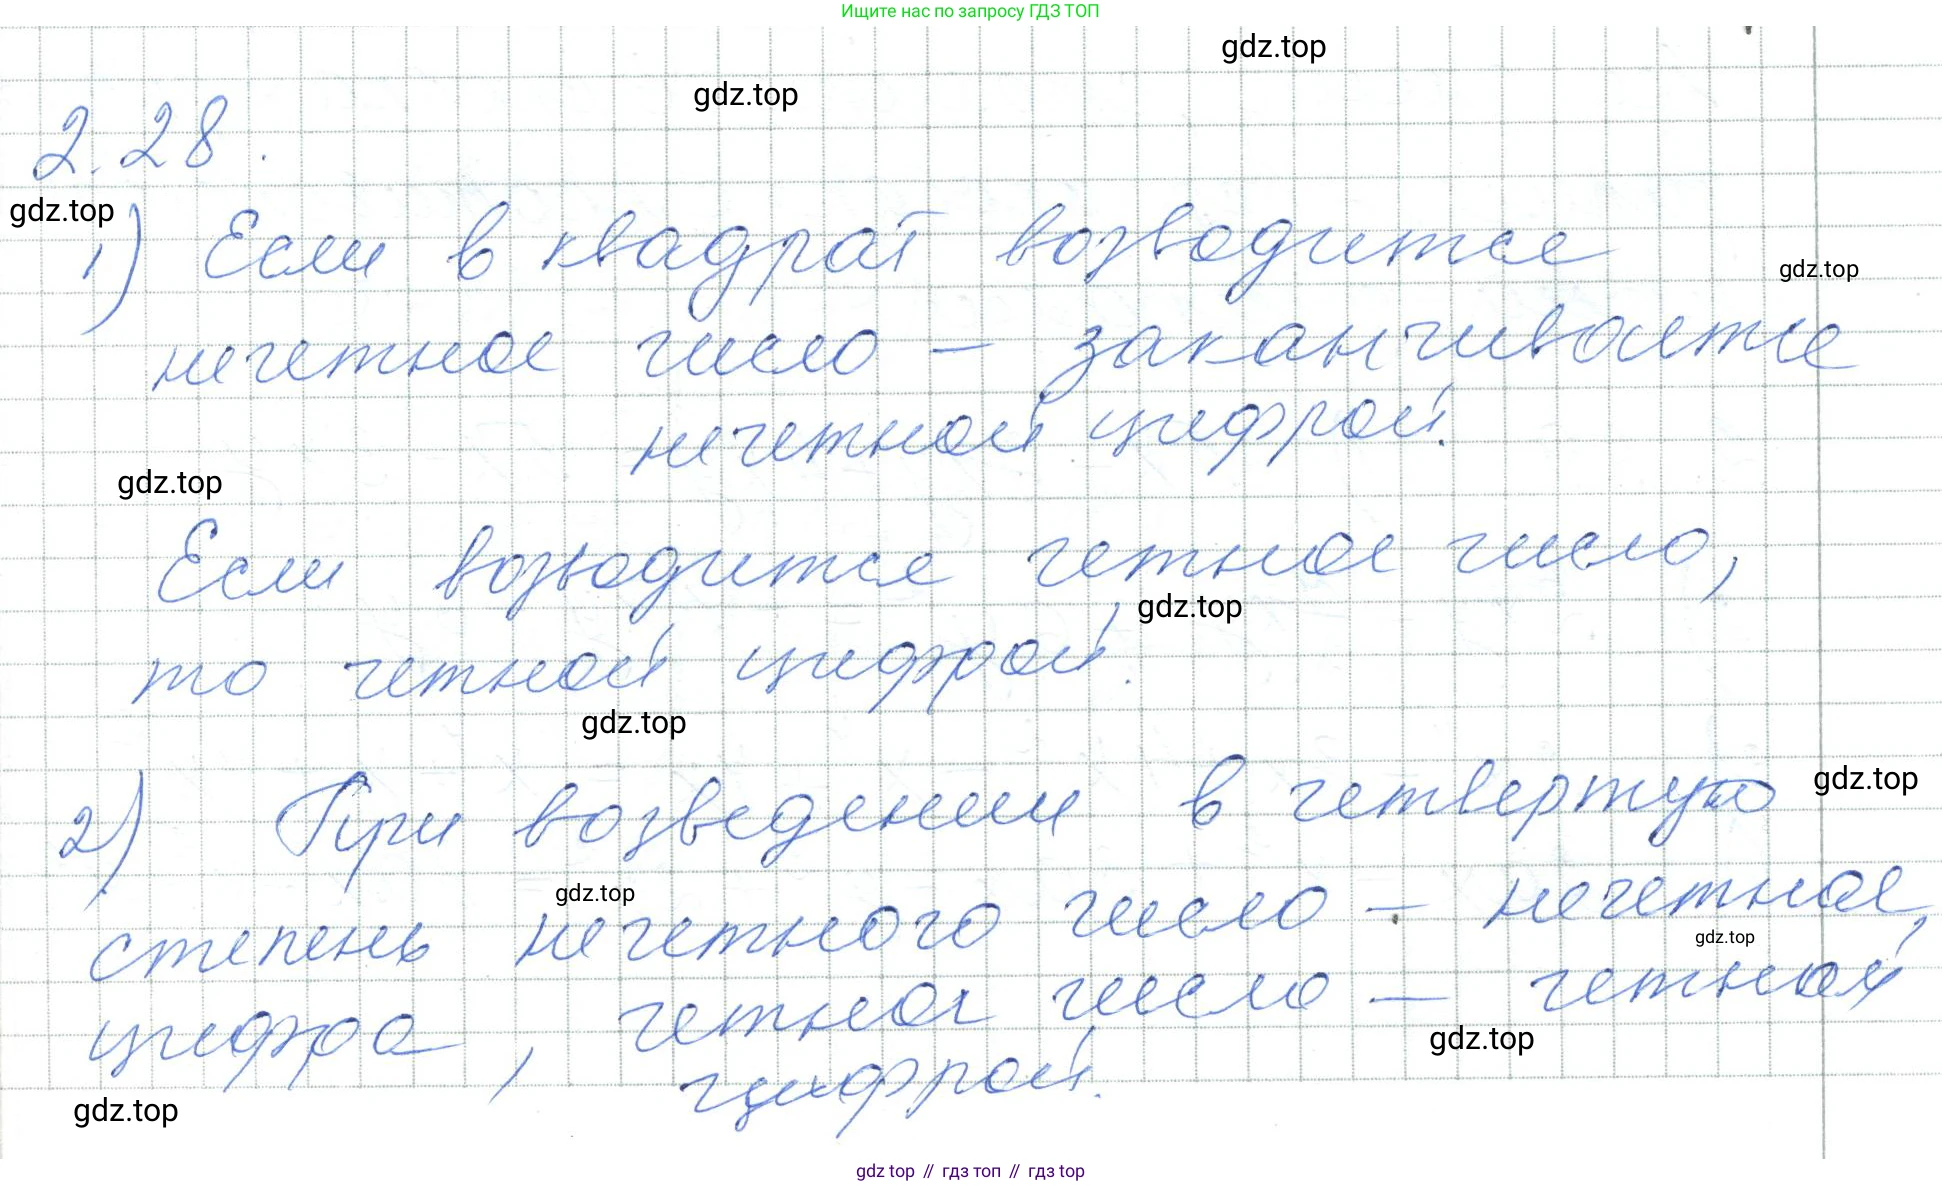 Ищите нас по запросу ГДЗ ТОП
gdz.top
gdz.top
2.28.
gdz.top
1) Если в квадрат возводится
gdz.top
нечетное число – заканчивается
нечетной цифрой.
gdz.top
Если возводится четное число,
gdz.top
то четной цифрой.
gdz.top
2) При возведении в четвертую
gdz.top
gdz.top
степень нечетного число – нечетное,
gdz.top
цифра, четное число – четной
gdz.top
цифрой.
gdz.top
gdz top // гдз топ // гдз top